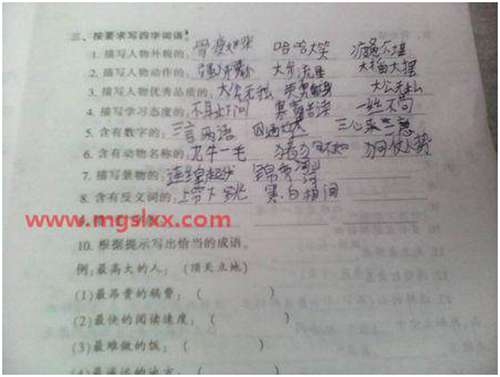 三、按要求写四字词语。
1. 描写人物外貌的： 骨瘦如柴 哈哈大笑
2. 描写人物动作的： 大汗流 大摇大摆
3. 描写人物优秀品质的： 大公无私 大公无私
4. 描写学习态度的： 不耻下问 寒窗苦读 一丝不苟
5. 含有数字的： 三言两语 四通 三心 二意
6. 含有动物名称的： 九牛一毛 狗仗人势
7. 描写景物的： 连绵起伏 锦绣河山
8. 含有反义词的： 上 下 黑白相间
www.mgslxx.com
10. 根据提示写出恰当的成语。
例：最高大的人：（顶天立地）
(1)最昂贵的稿费：（ ）
(2)最快的阅读速度：（ ）
(3)最难做的饭：（ ）
(4)最遥远的地方：（